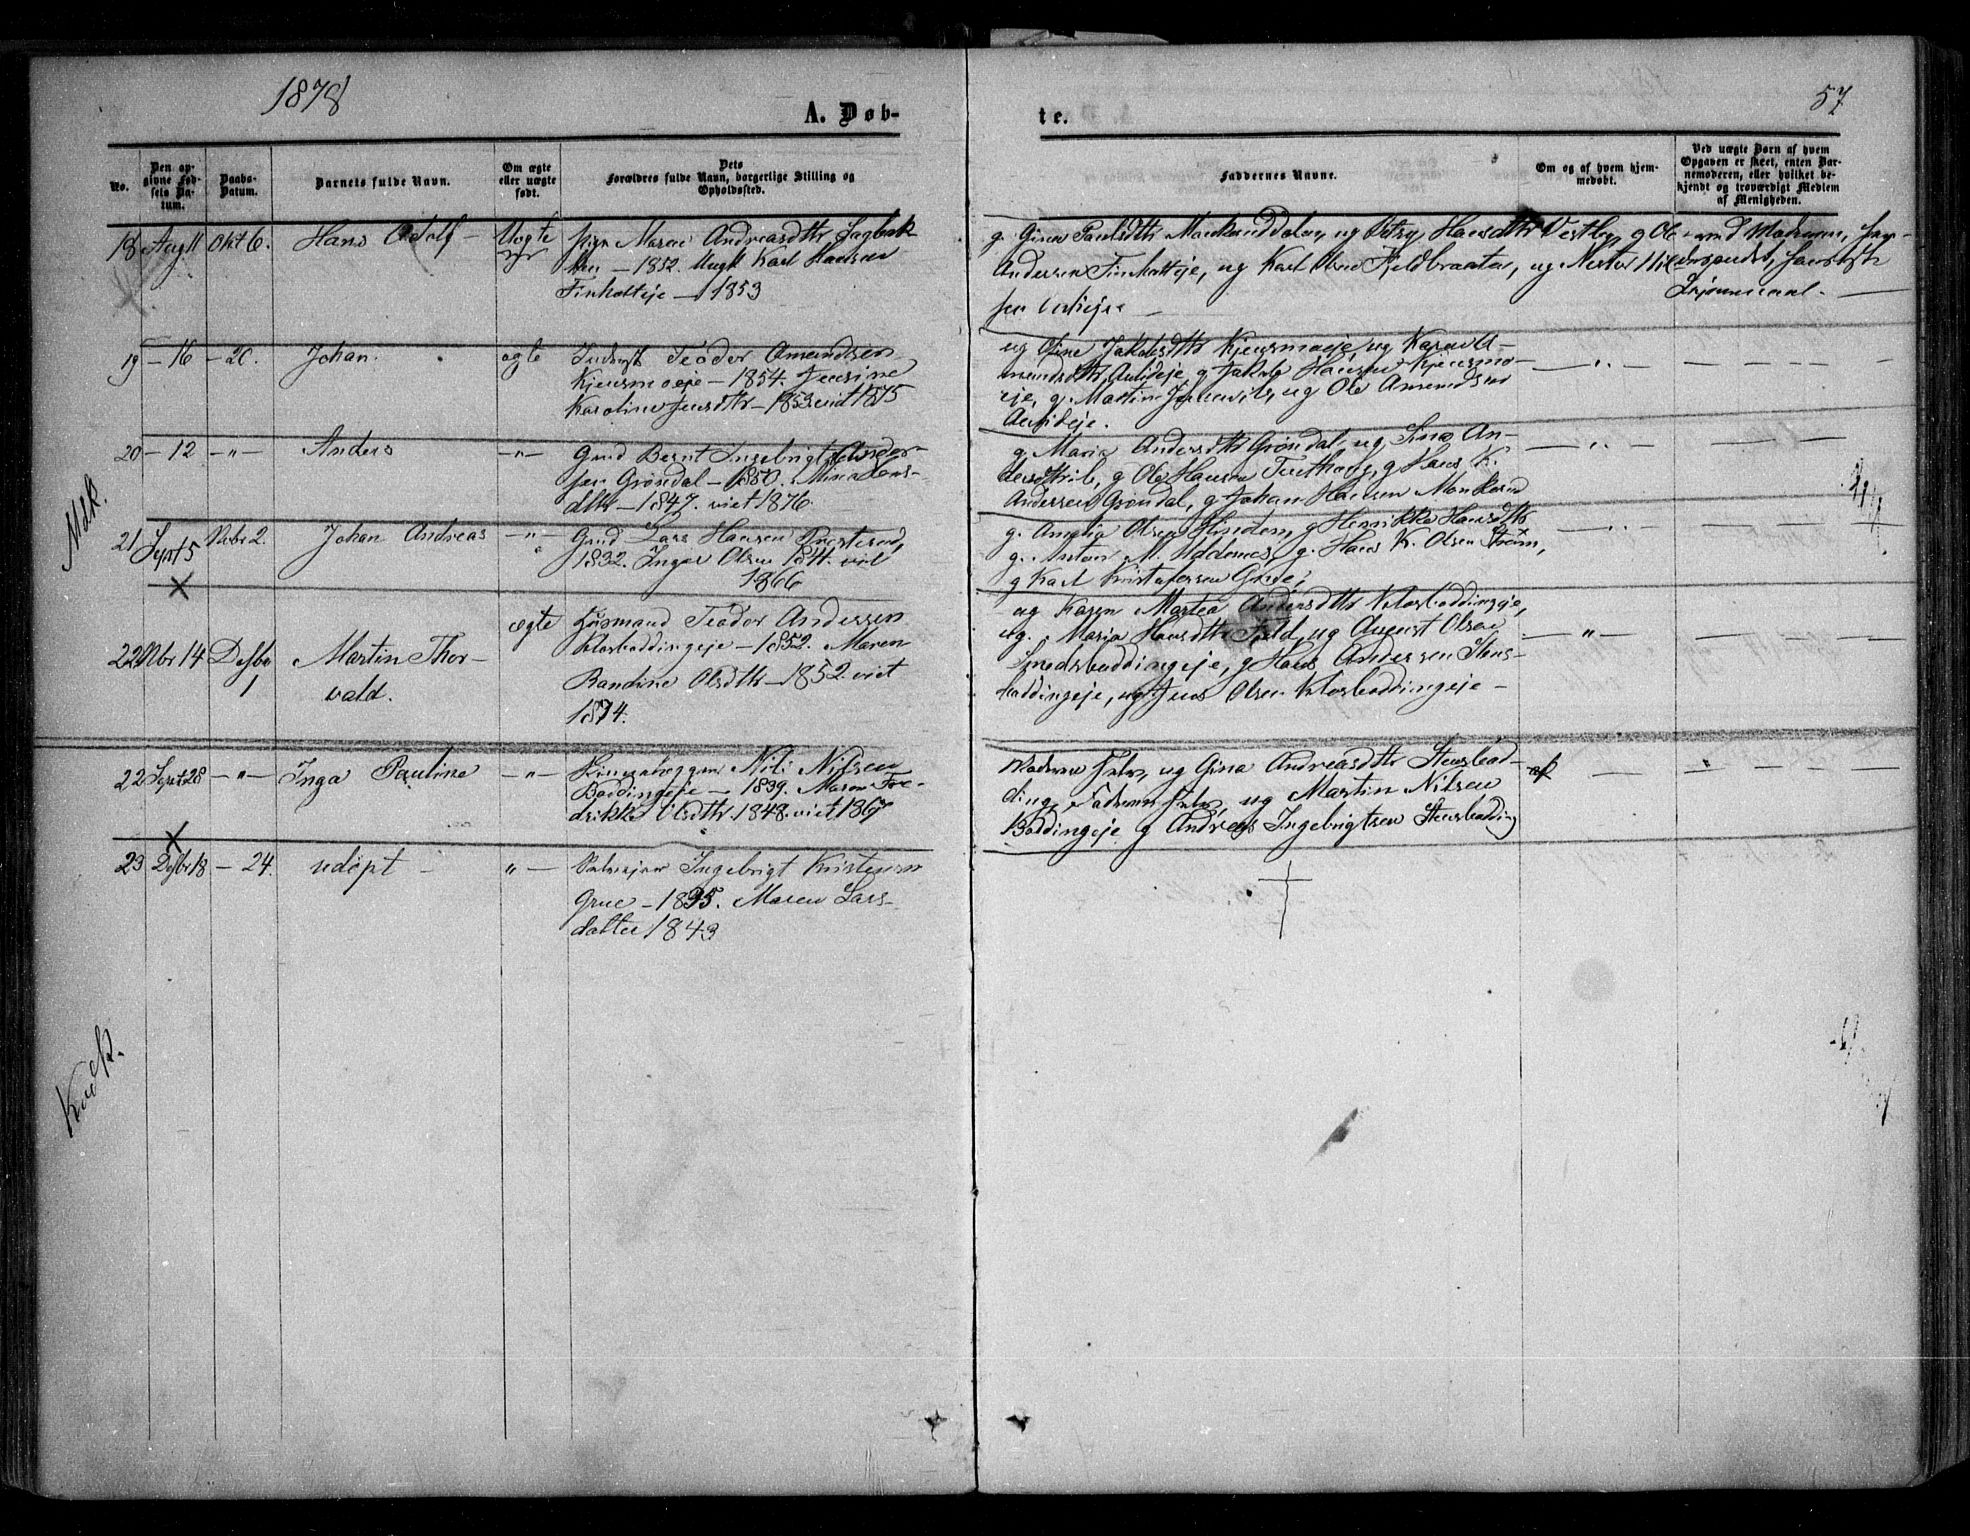 1878
A. Døb-
te.
57
No.
Den op-
givne Fød-
sels Da-
tum.
Daabs-
Datum.
Barnets fulde Navn.
Om ægte
eller uægte
født.
Dets
Forældres fulde Navn, borgerlige Stilling og
Opholdssted.
Faddernes Navne.
Om og af hvem hjem-
medøbt.
Ved uægte Børn af hvem
Opgaven er skeet, enten Bar-
nemoderen, eller hvilket be-
kjendt og troværdigt Medlem
af Menigheden.
18 Aug 11 Okt 6. Hans Adolf - Uegte
pige Maren Andreasdtr Sagbak
ken - 1852. Ungk Karl Hansen
Finholteje - 1853
g. Gina Paulsdtr Monkerud dalen, ug Betsy Hansdtr Vestby, g Ole
Andersen Finholteje, ug Karl Fjeldbraaten, ug
19 - 16 - 20. Johan. ægte
Inderst Teodor Amundsen
Kjensmoeje - 1854. Jensine
Karoline Jensdtr - 1853 viet 1875
ug Jakobsdtr Kjensmoeje, ug Karen A-
mundsdtr Aulieje, g Jakob Hansen Kjensmo-
eje, g. Martin Jensen ib, ug Ole Amundsen
Aulieje.
20 - 12 - " - Anders - " -
Gmd Bernt Ingebrigt Ander-
sen Grøndal - 1850. Mina Lars-
dtr - 1847. viet 1876.
g Maria Andersdtr Grøndal, ug Lina An-
dersdtr ib, g Ole Hansen g Hans K.
Andersen Grøndal, g Johan Hansen Monkerud
Mdk.
21 Sept 5 Novbr 2. Johan Andreas - " -
Gmd Lars Hansen Prestrud,
1832. Inger Olsen 1841. viet
1866
g. Amalia Olsen Linden, g Henrikke Hansdtr
g. Anton M. Uddenæs, g. Hans K. Olsen Strøm,
g Karl Kristofersen Grue;
22 Nbr 14 Desbr 1 Martin Thor-
vald.
ægte
Løsmand Teodor Andersen
Klosbaddingeje - 1852. Maren
Randine Olsdtr - 1852. viet
1874.
ug Karen Martea Andersdtr Klosbaddingeje,
ug. Maria Hansdtr Fjeld, ug August Olsen
Smedsbaddingeje, g Hans Andersen Stens-
baddingeje, ug Jens Olsen Klosbaddingeje -
22 Sept 28 - " - Inga Pauline - " -
Nils Nilsen
Baddingeje - 1839. Maren Fre-
drikke Olsdtr. 1848. viet 1867
Moderen selv, ug Gina Andreasdtr Stensbad-
ding, Faderen selv, ug Martin Nilsen
Baddingeje g Andreas Ingebrigtsen Stensbadding
23 Desbr 18 - 24. udøpt - " -
Ingebrigt Kristensen
Grue - 1835. Maren Lars-
datter 1843